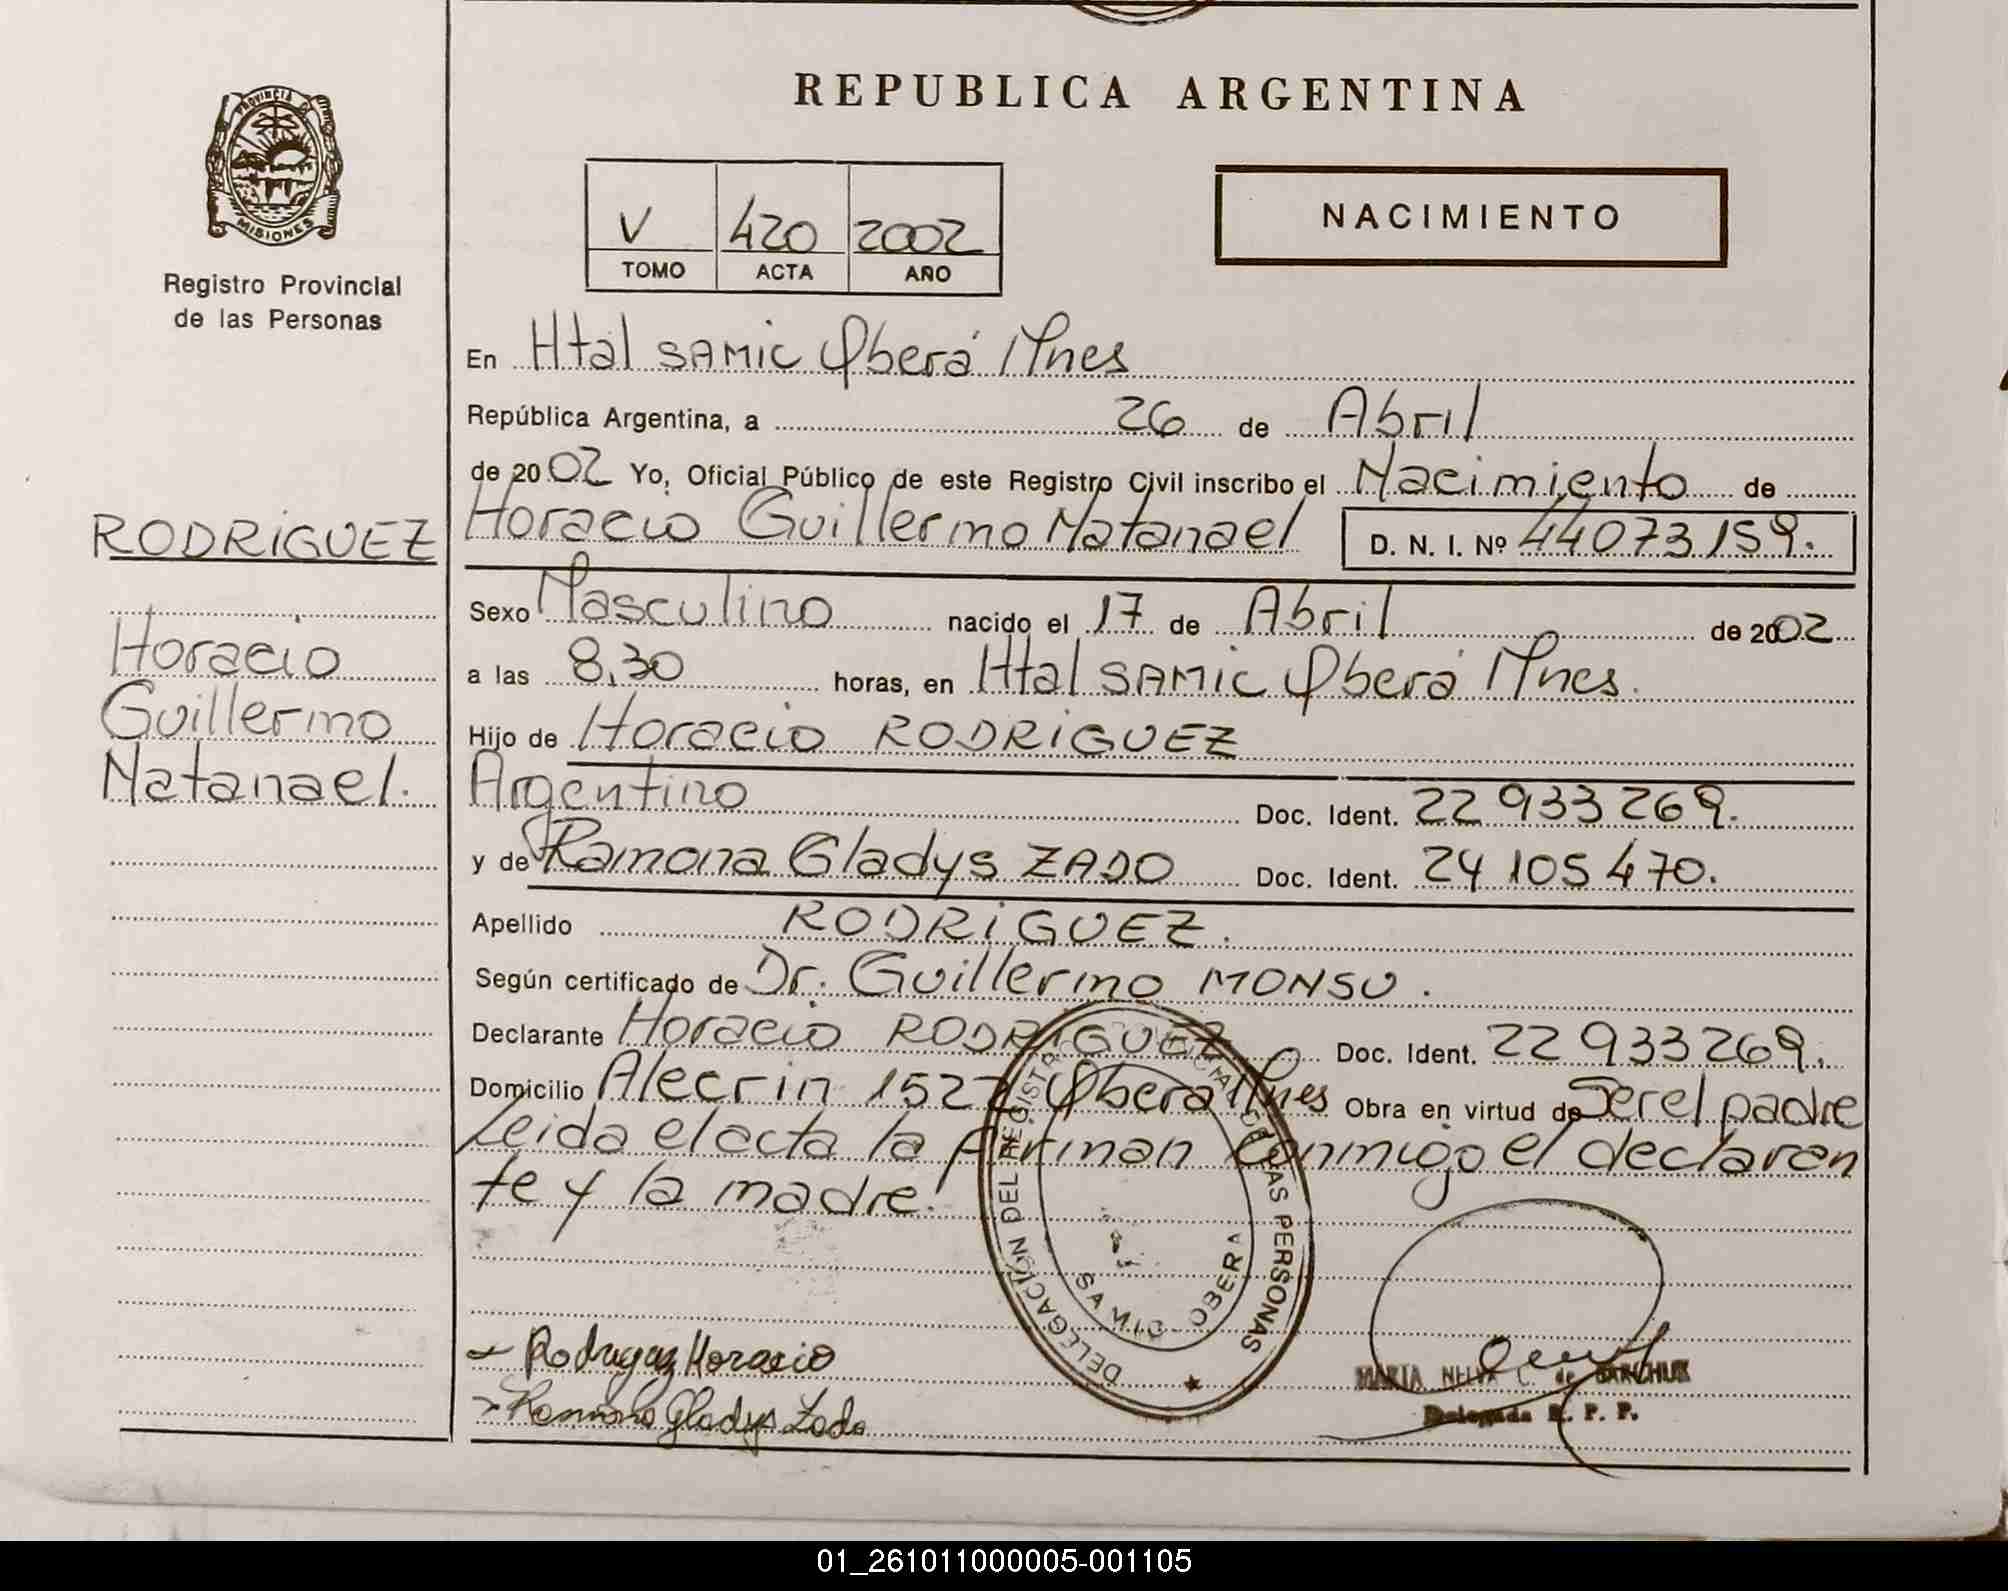 REPUBLICA ARGENTINA
PROVINCIA DE
MISIONES
Registro Provincial
de las Personas
V 420 2002
TOMO ACTA AÑO
NACIMIENTO
En Htal SAMIC Oberá Mnes
República Argentina, a 26 de Abril
de 2002 Yo, Oficial Público de este Registro Civil inscribo el Nacimiento de
Horacio Guillermo Natanael D. N. I. Nº 44073159.
RODRIGUEZ
Horacio
Guillermo
Natanael.
Sexo Masculino nacido el 17 de Abril de 2002
a las 8,30 horas, en Htal SAMIC Oberá Mnes.
Hijo de Horacio RODRIGUEZ
Argentino Doc. Ident. 22 933 269.
y de Ramona Gladys ZADO Doc. Ident. 24 105 470.
Apellido RODRIGUEZ.
Según certificado de Dr. Guillermo MONSU.
Declarante Horacio RODRIGUEZ Doc. Ident. 22 933 269.
Domicilio Alecrin 1527 Oberá Mnes Obra en virtud de Ser el padre
Leida el acta la firman conmigo el declaran
te y la madre.
DELEGACIÓN DEL REGISTRO PROVINCIAL DE LAS PERSONAS
SAMIC - OBERA
Rodriguez Horacio
Ramona Gladys Zado
MARIA NELVA C. de
Delegada R. P. P.
01_261011000005-001105